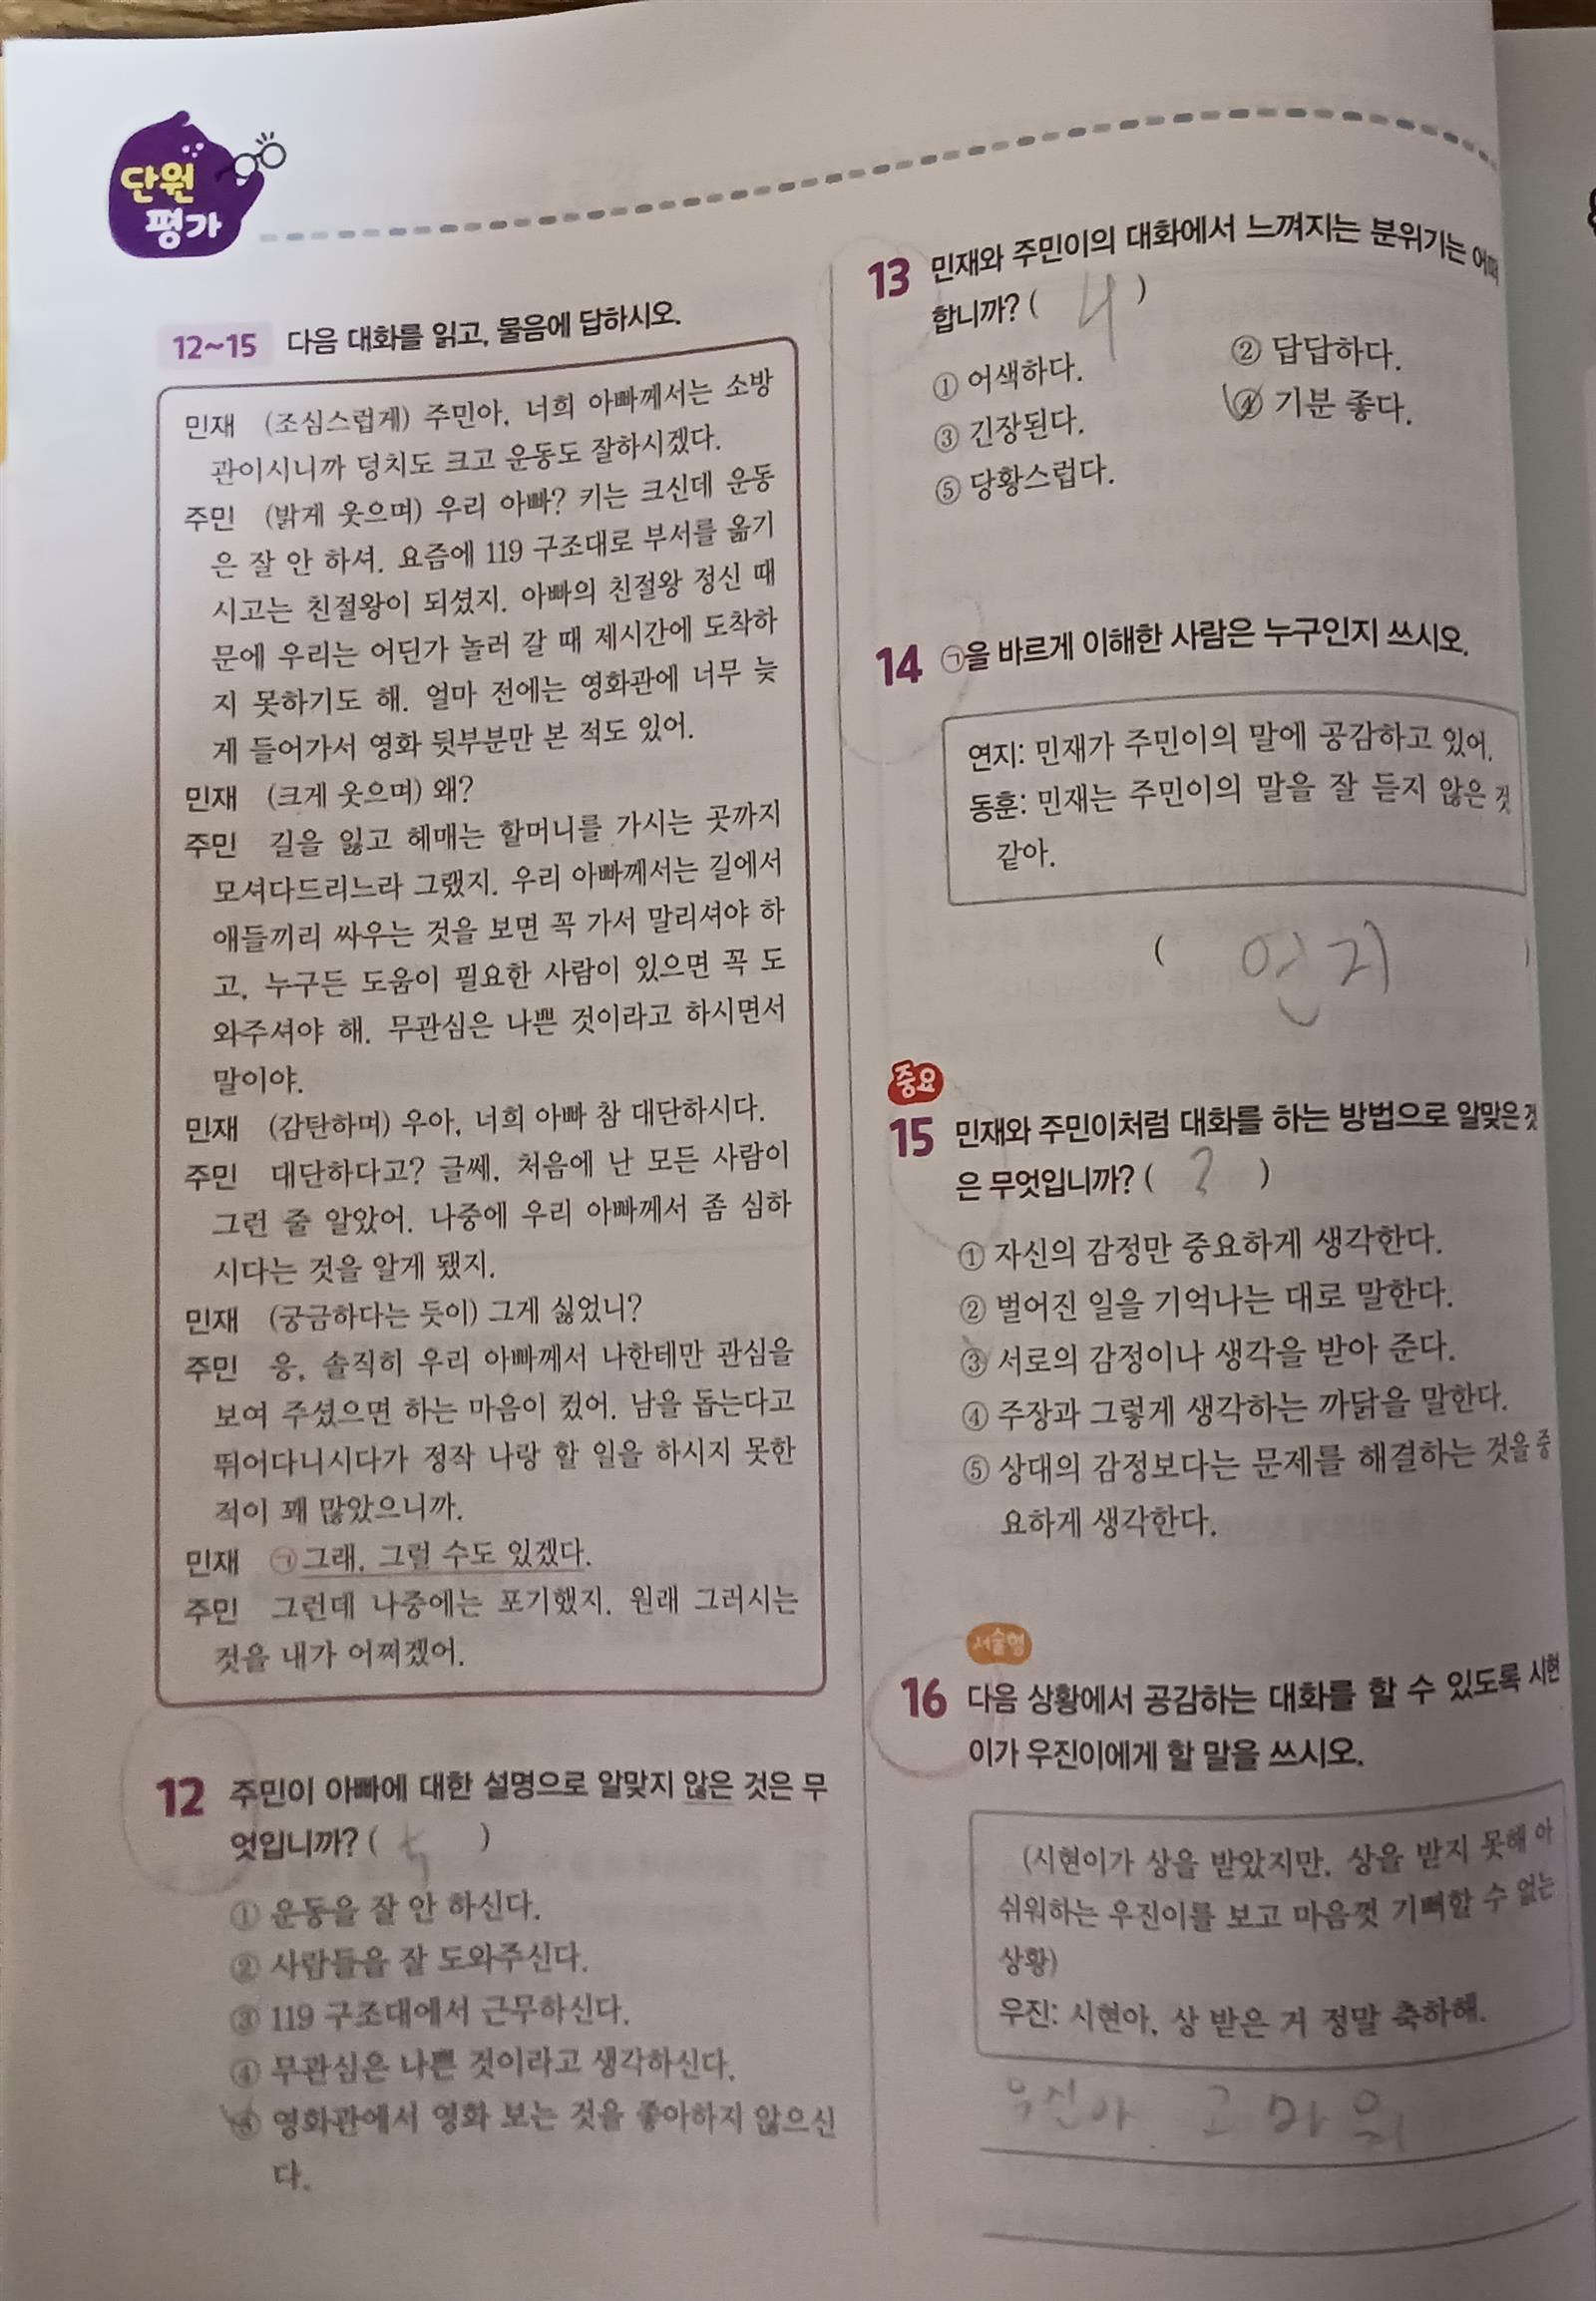 단원
평가
12~15 다음 대화를 읽고, 물음에 답하시오.
민재 (조심스럽게) 주민아, 너희 아빠께서는 소방
관이시니까 덩치도 크고 운동도 잘하시겠다.
주민 (밝게 웃으며) 우리 아빠? 키는 크신데 운동
은 잘 안 하셔. 요즘에 119 구조대로 부서를 옮기
시고는 친절왕이 되셨지. 아빠의 친절왕 정신 때
문에 우리는 어딘가 놀러 갈 때 제시간에 도착하
지 못하기도 해. 얼마 전에는 영화관에 너무 늦
게 들어가서 영화 뒷부분만 본 적도 있어.
민재 (크게 웃으며) 왜?
주민 길을 잃고 헤매는 할머니를 가시는 곳까지
모셔다드리느라 그랬지. 우리 아빠께서는 길에서
애들끼리 싸우는 것을 보면 꼭 가서 말리셔야 하
고, 누구든 도움이 필요한 사람이 있으면 꼭 도
와주셔야 해. 무관심은 나쁜 것이라고 하시면서
말이야.
민재 (감탄하며) 우아, 너희 아빠 참 대단하시다.
주민 대단하다고? 글쎄, 처음에 난 모든 사람이
그런 줄 알았어. 나중에 우리 아빠께서 좀 심하
시다는 것을 알게 됐지.
민재 (궁금하다는 듯이) 그게 싫었니?
주민 응, 솔직히 우리 아빠께서 나한테만 관심을
보여 주셨으면 하는 마음이 컸어. 남을 돕는다고
뛰어다니시다가 정작 나랑 할 일을 하시지 못한
적이 꽤 많았으니까.
민재 ㉠그래, 그럴 수도 있겠다.
주민 그런데 나중에는 포기했지. 원래 그러시는
것을 내가 어쩌겠어.
12 주민이 아빠에 대한 설명으로 알맞지 않은 것은 무
엇입니까? ( 5 )
① 운동을 잘 안 하신다.
② 사람들을 잘 도와주신다.
③ 119 구조대에서 근무하신다.
④ 무관심은 나쁜 것이라고 생각하신다.
⑤ 영화관에서 영화 보는 것을 좋아하지 않으신
다.
13 민재와 주민이의 대화에서 느껴지는 분위기는 어떠
합니까? ( 4 )
① 어색하다. ② 답답하다.
③ 긴장된다. ④ 기분 좋다.
⑤ 당황스럽다.
14 ㉠을 바르게 이해한 사람은 누구인지 쓰시오.
연지: 민재가 주민이의 말에 공감하고 있어.
동훈: 민재는 주민이의 말을 잘 듣지 않은 것
같아.
( 연지 )
중요
15 민재와 주민이처럼 대화를 하는 방법으로 알맞은 것
은 무엇입니까? ( 3 )
① 자신의 감정만 중요하게 생각한다.
② 벌어진 일을 기억나는 대로 말한다.
③ 서로의 감정이나 생각을 받아 준다.
④ 주장과 그렇게 생각하는 까닭을 말한다.
⑤ 상대의 감정보다는 문제를 해결하는 것을 중
요하게 생각한다.
서술형
16 다음 상황에서 공감하는 대화를 할 수 있도록 시현
이가 우진이에게 할 말을 쓰시오.
(시현이가 상을 받았지만, 상을 받지 못해 아
쉬워하는 우진이를 보고 마음껏 기뻐할 수 없는
상황)
우진: 시현아, 상 받은 거 정말 축하해.
우진아. 고마워